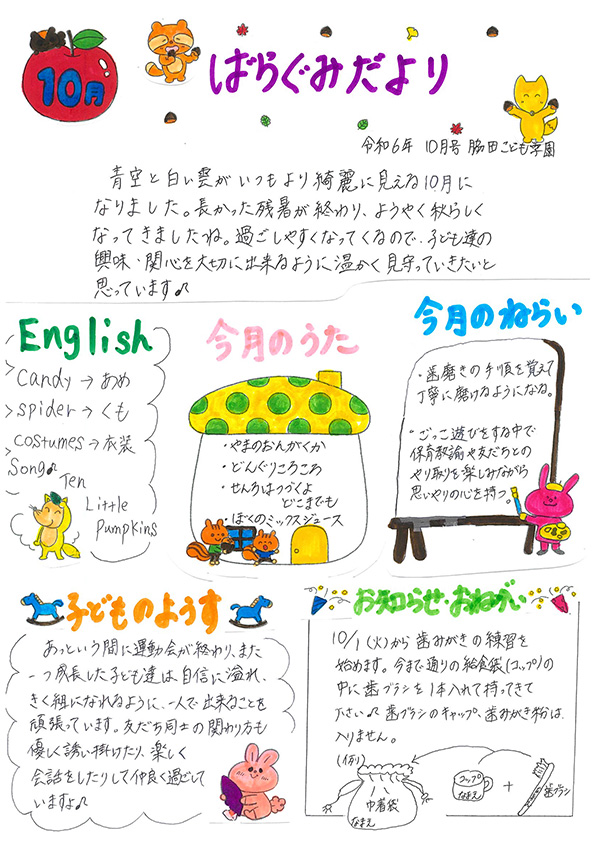 10月
ばらぐみだより
令和6年 10月号 脇田こども学園
青空と白い雲がいつもより綺麗に見える10月に
なりました。長かった残暑が終わり、ようやく秋らしく
なってきましたね。過ごしやすくなってくるので、子ども達の
興味・関心を大切に出来るように温かく見守っていきたいと
思っています♪
English
candy→あめ
spider→くも
costumes→衣装
Song♪
Ten
Little
Pumpkins
今月のうた
・やまのおんがくか
・どんぐりころころ
・せんろはつづくよ
どこまでも
・ぼくのミックスジュース
今月のねらい
・歯磨きの手順を覚えて
丁寧に磨けるようになる。
・ごっこ遊びをする中で
保育教諭や友だちとの
やり取りを楽しみながら
思いやりの心を持つ。
子どものようす
あっという間に運動会が終わり、また
一つ成長した子ども達は自信に溢れ、
きく組になれるように、一人で出来ることを
頑張っています。友だち同士の関わり方も
優しく誘い掛けたり、楽しく
会話をしたりして仲良く過ごして
いますよ♪
お知らせ・おねがい
10/1(火)から歯みがきの練習を
始めます。今まで通りの給食袋(コップ)の
中に歯ブラシを1本入れて持ってきて
下さい♪歯ブラシのキャップ、歯みがき粉は、
入りません。
(例)
巾着袋
なまえ
コップ
なまえ
+
歯ブラシ